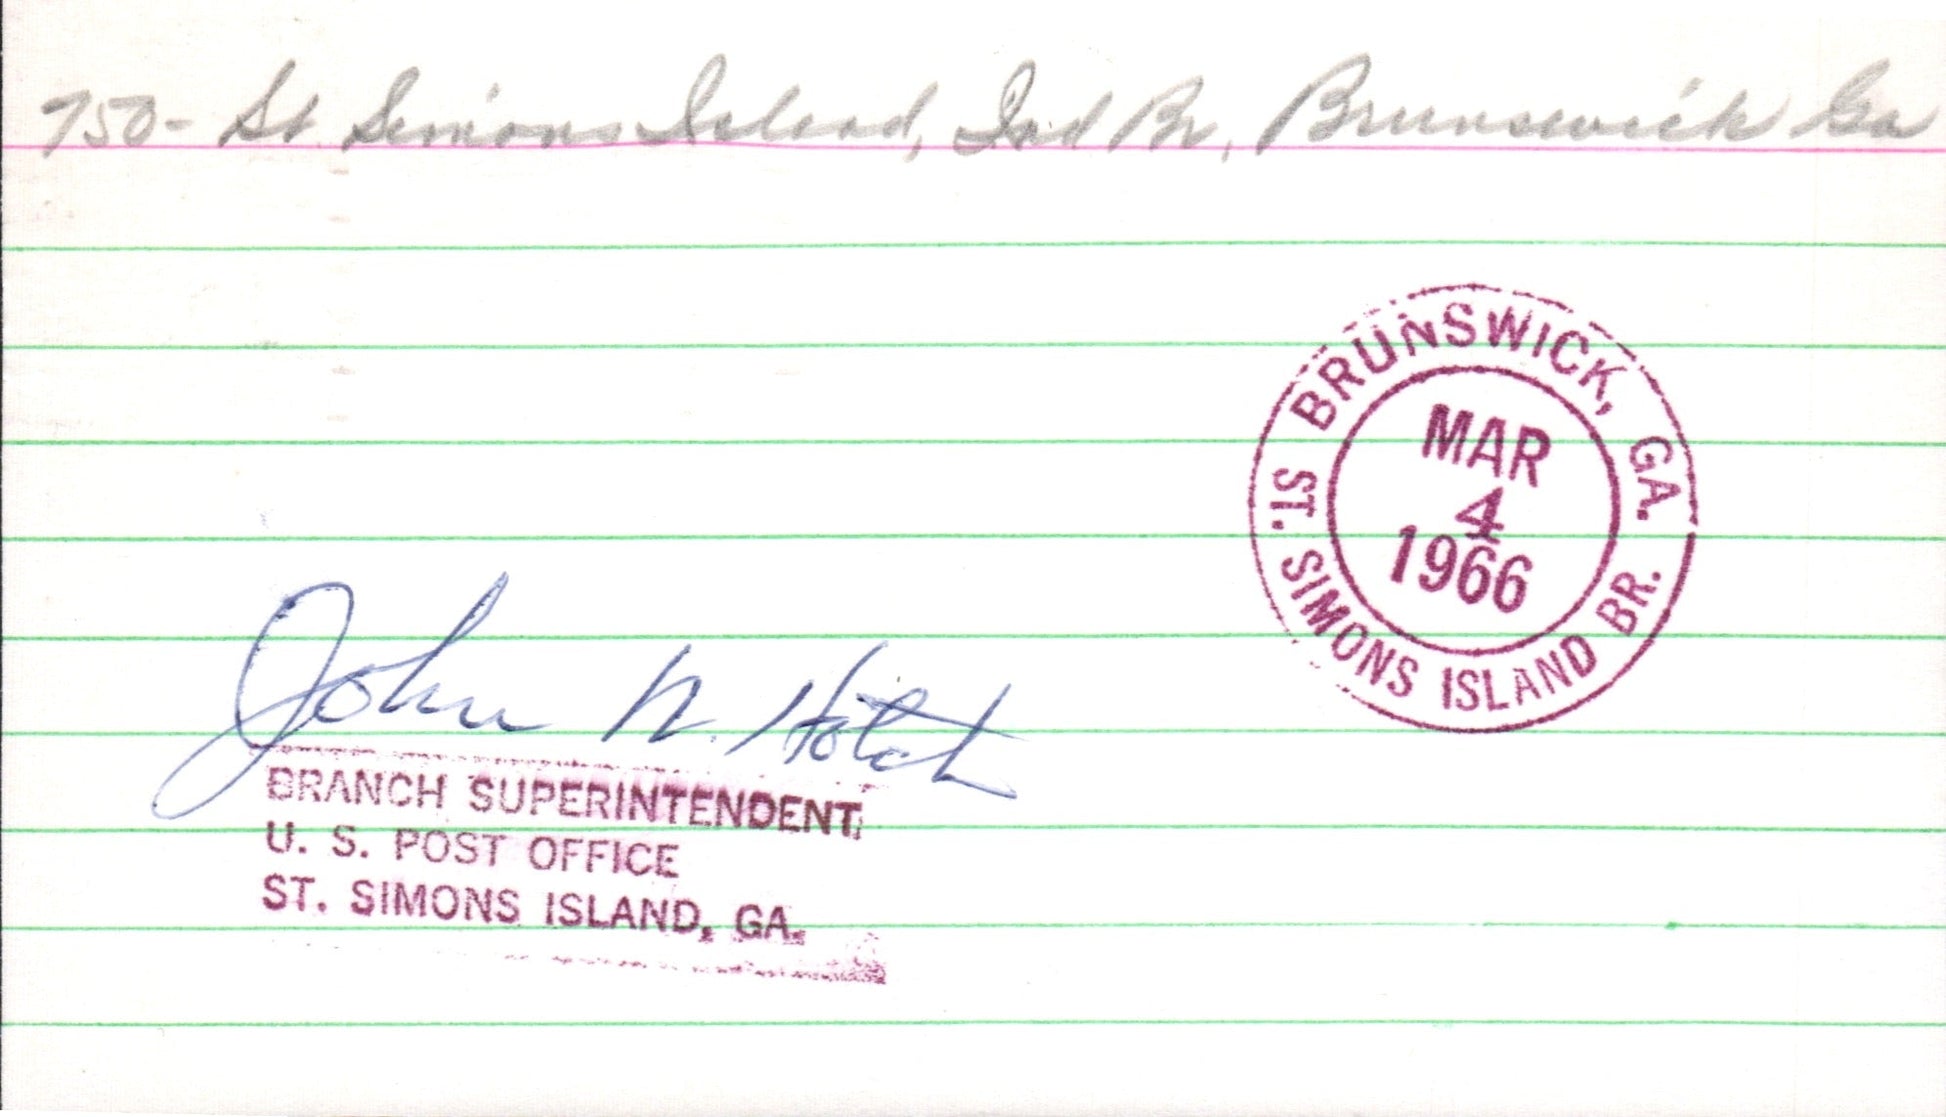 750- St. Simons Island, Ind Br, Brunswick Ga
BRUNSWICK, GA.
MAR
4
1966
ST. SIMONS ISLAND BR.
John N.
BRANCH SUPERINTENDENT
U. S. POST OFFICE
ST. SIMONS ISLAND, GA.